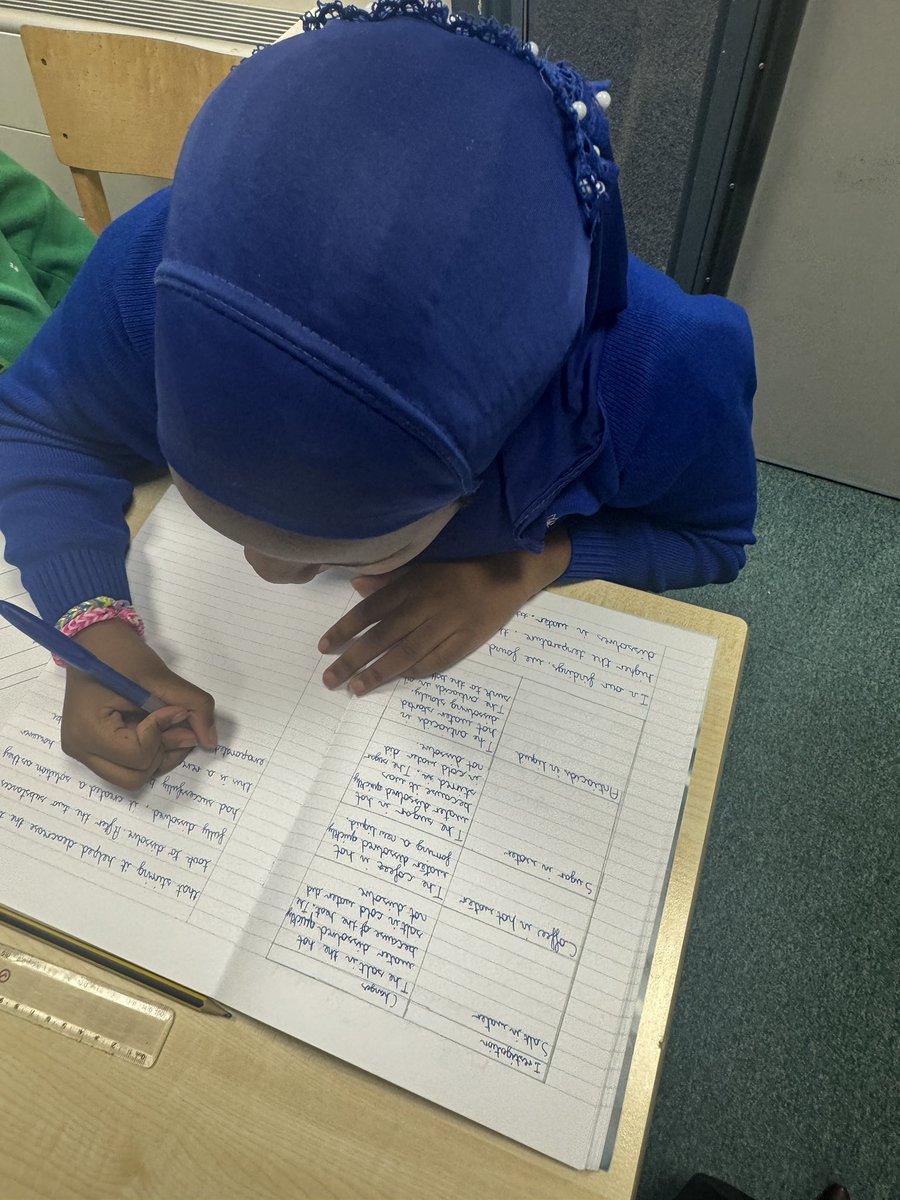 Investigation
Changes
Salt in water
The salt in the hot
water dissolved quickly
because of the heat. The
salt in cold water did
not dissolve.
Coffee in hot water
The coffee in hot
water dissolved quickly
forming a new liquid
Sugar in water
The sugar in hot
water dissolved quickly
because it was
stirred in. The sugar
in cold water did
not dissolve.
Antiacids in liquid
The antiacids in
hot water started
dissolving slowly.
The antiacids in
sunk to the
In our findings, we found
higher the temperature, the
dissolves in water.
that stirring it helped deacrease the
took to dissolve. After the two substances
fully dissolved, it created a solution as they
had successfully
this is a rev
evaporated
however
be